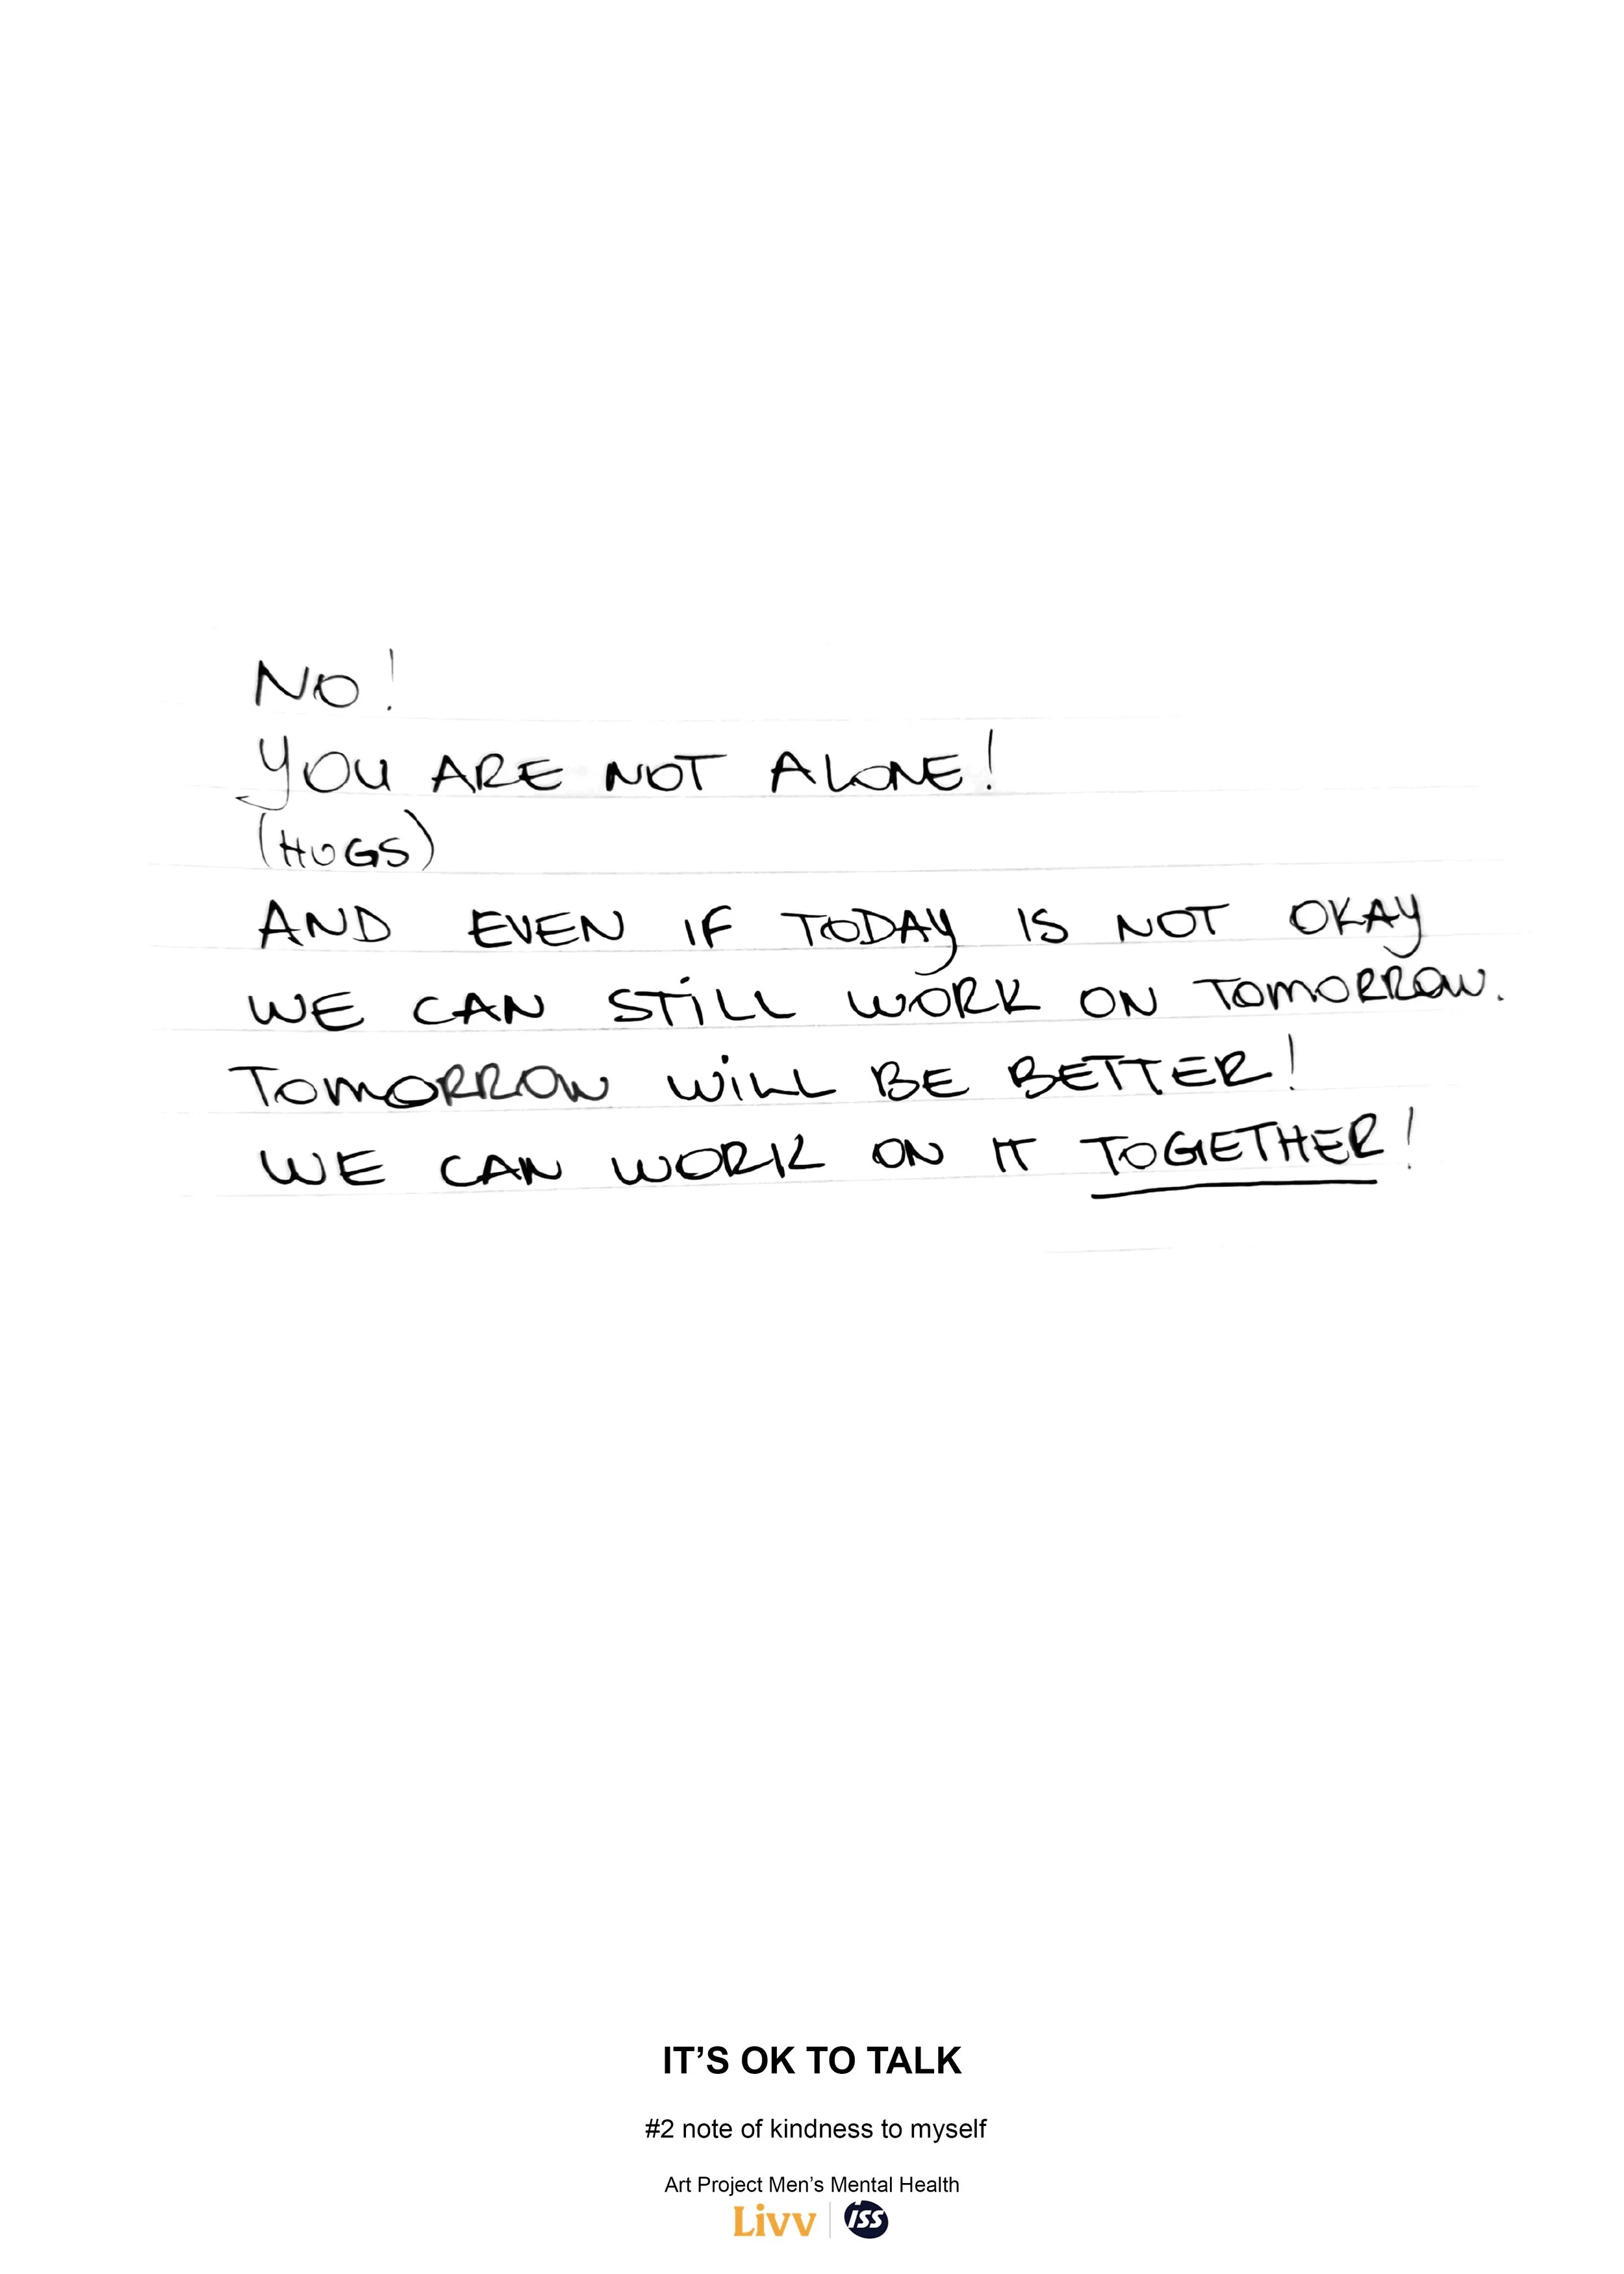 NO!
YOU ARE NOT ALONE!
(HUGS)
AND EVEN IF TODAY IS NOT OKAY
WE CAN STiLL WORK ON TOMORROW.
TOMORROW WiLL BE BETTER!
WE CAN WORK ON IT TOGETHER!
IT’S OK TO TALK
#2 note of kindness to myself
Art Project Men’s Mental Health
Livv ISS